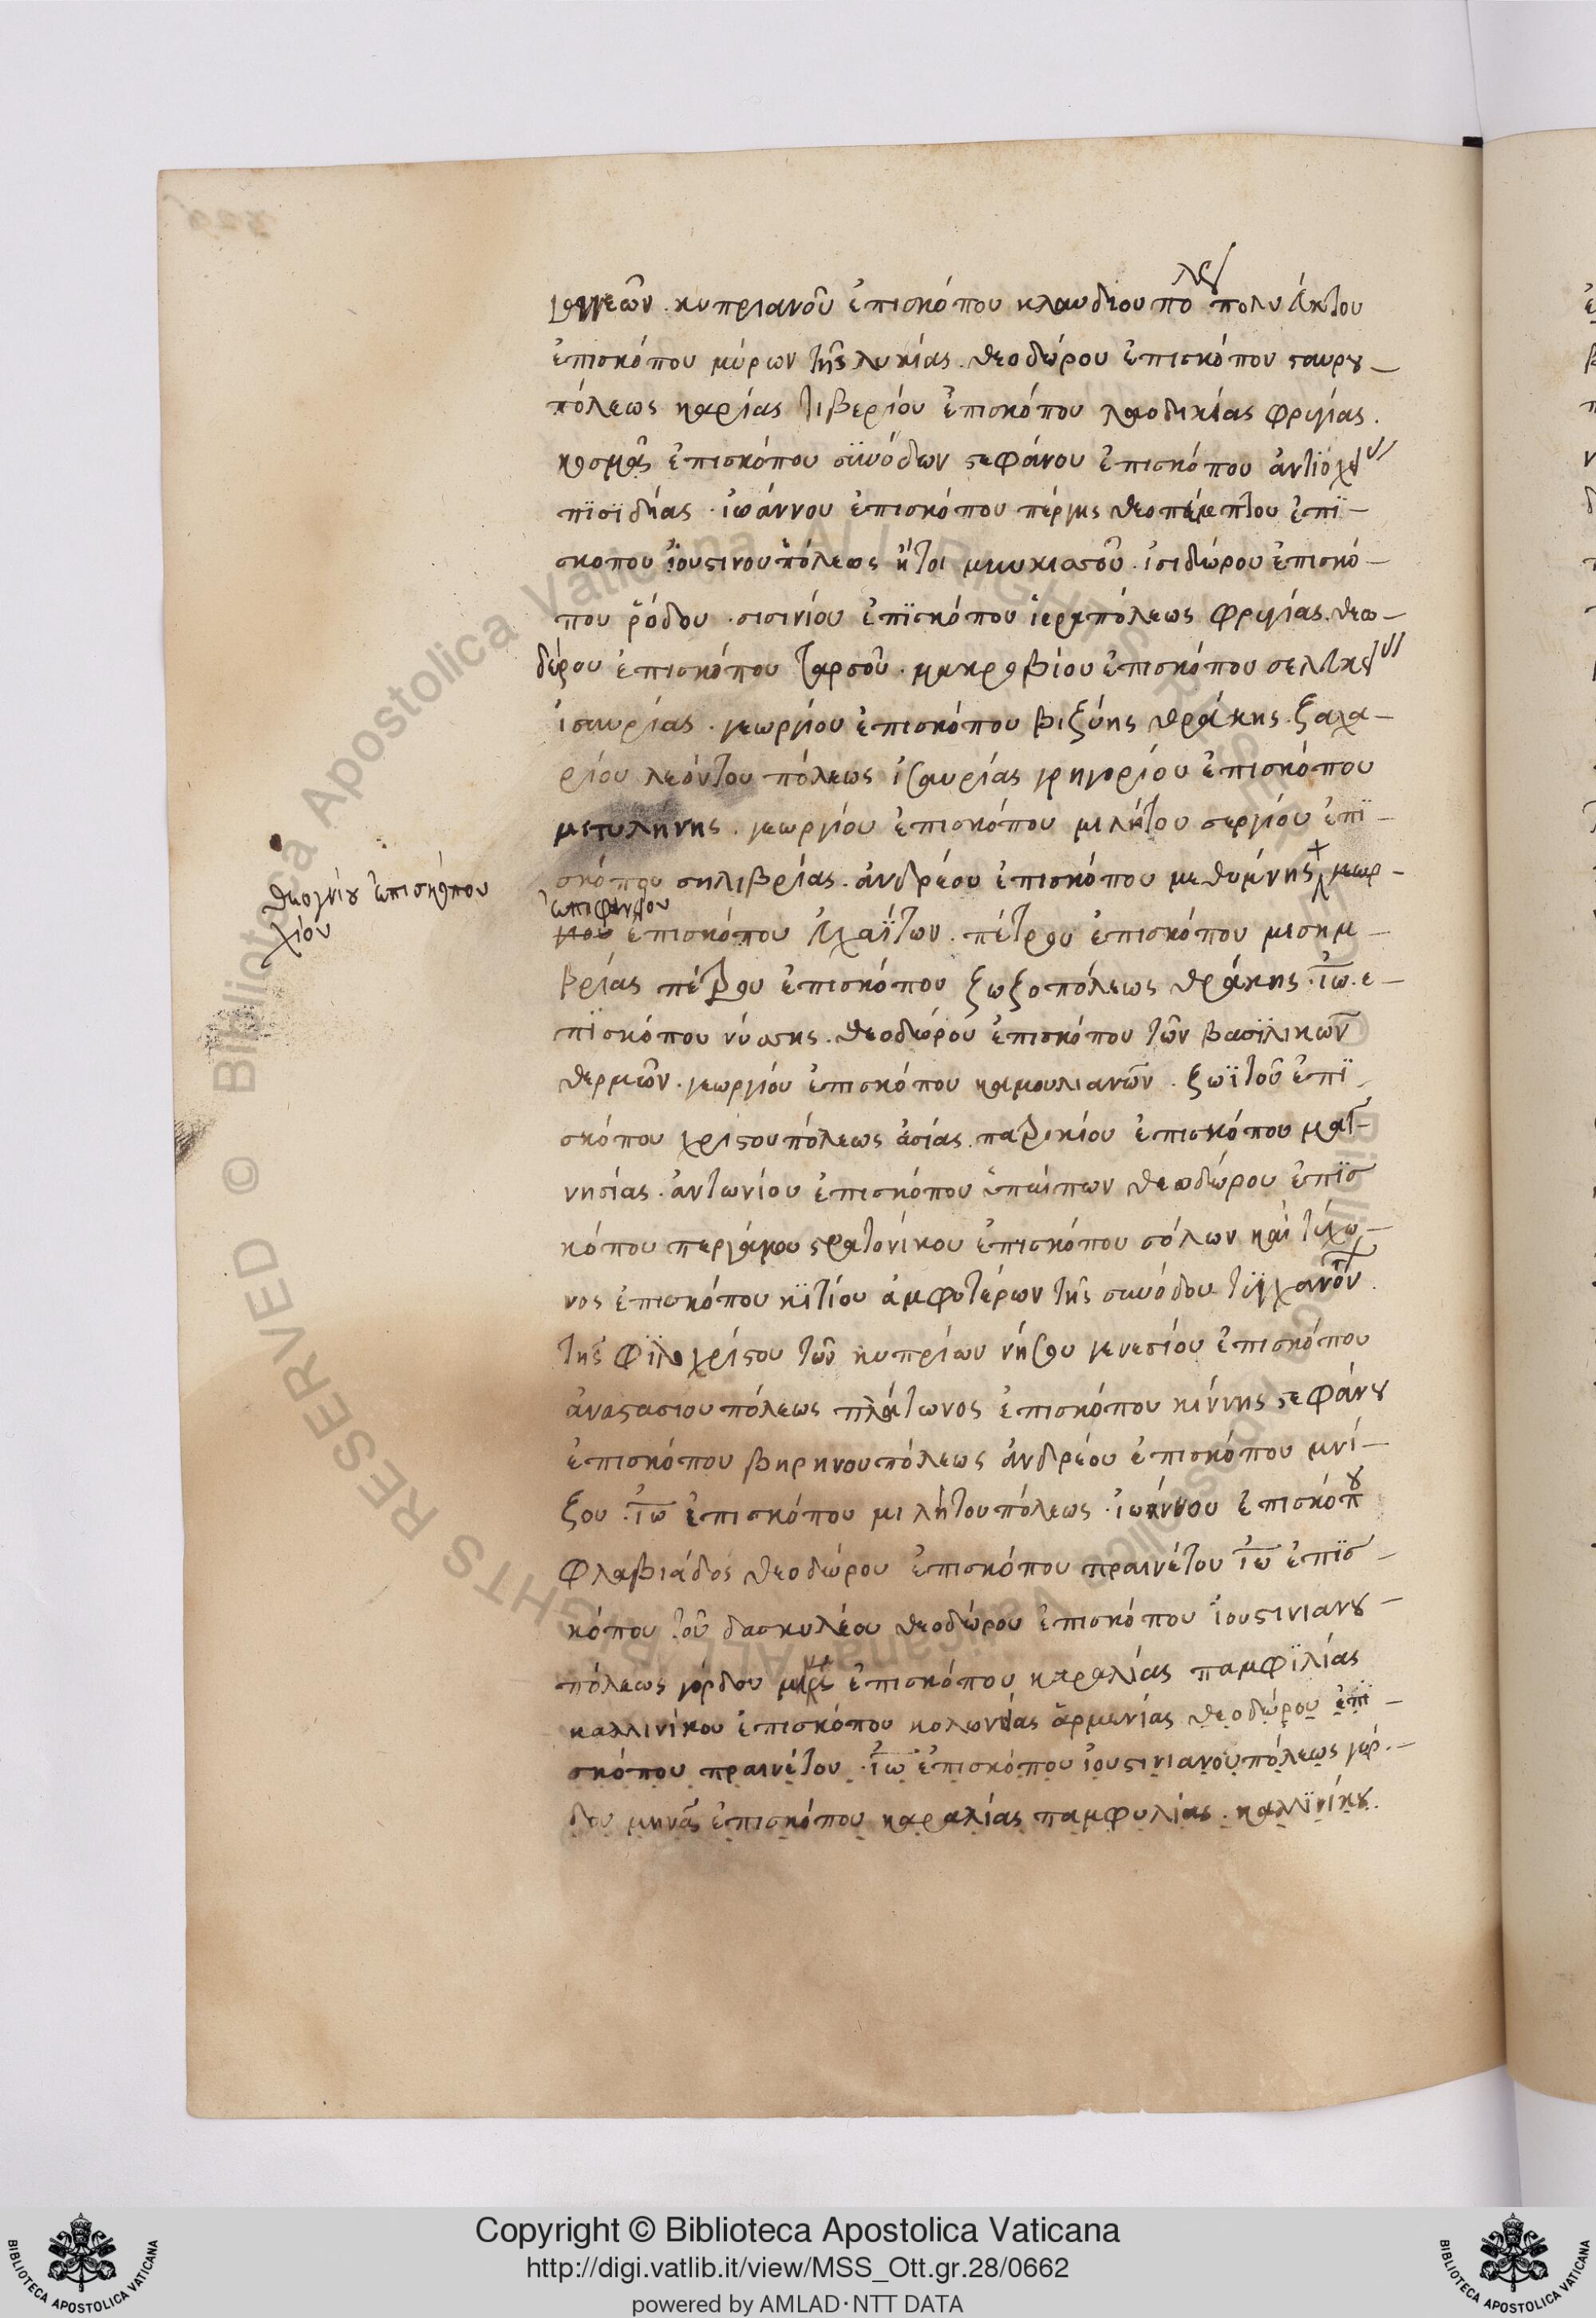 γγεῶν. κυπριανοῦ ἐπισκόπου κλαυδιουπό πολυεύκτου
ἐπισκόπου μύρων τῆς λυκίας. θεοδώρου ἐπισκόπου σταυρου—
πόλεως καρίας τιβερίου ἐπισκόπου λαοδικείας φρυγίας.
κοσμᾶς ἐπισκόπου συνόδων στεφάνου ἐπισκόπου ἀντιοχεί
πϊσϊδίας. ἰωάννου ἐπισκόπου πέργης θεοπέμπτου ἐπϊ—
σκοπου ἰουστινουπόλεως ἤτοι μωκισοῦ. ἰσιδώρου ἐπισκό—
που ῥόδου. σισινίου ἐπϊσκόπου ἱεραπόλεως φρυγίας. θεο—
δώρου ἐπισκόπου ταρσοῦ. μακροβίου ἐπισκόπου σελευκεί
ἰσαυρίας. γεωργίου ἐπισκόπου βιζύης θράκης. ζαχα—
ρίου λεόντου πόλεως ἰσαυρίας γρηγορίου ἐπισκόπου
μιτυλήνης. γεωργίου ἐπισκόπου μιλήτου σεργίου ἐπϊ—
σκόπου σηλιβρίας. ἀνδρέου ἐπισκόπου μεθύμνης γεωρ—
θεογνίου ἐπισκόπου
χίου
ἐπιφανίου
γιου ἐπισκόπου εὐχαΐτων. πέτρου ἐπισκόπου μεσημ—
βρίας πέτρου ἐπισκόπου ζωζοπόλεως θράκης. ἰω. ε—
πϊσκόπου νύσσης. θεοδώρου ἐπισκόπου τῶν βασϊλικῶν
θερμῶν. γεωργίου ἐπισκόπου καμουλιανῶν. ζωϊτοῦ ἐπϊ
σκόπου χριστουπόλεως ἀσίας. πατρικίου ἐπισκόπου μαγ—
νησίας. ἀντωνίου ἐπισκόπου ὑπαίπων θεοδώρου ἐπϊσ
κόπου περγάμου στρατονίκου ἐπισκόπου σόλων καὶ τύχω—
νος ἐπισκόπου κϊτίου ἀμφοτέρων τῆς συνόδου τυγχανόν
τῆς φϊλοχρίστου τῶν κυπρίων νήσου γενεσίου ἐπισκόπου
ἀναστασιουπόλεως πλάτωνος ἐπισκόπου κίννης στεφάνου
ἐπισκόπου βηρηνουπόλεως ἀνδρέου ἐπισκόπου μνί—
ζου. ἰω ἐπισκόπου μιλήτουπόλεως. ἰωάννου ἐπισκόπου
φλαβιάδος θεοδώρου ἐπισκόπου πραινέτου ἰω ἐπϊσ—
κόπου τοῦ δασκυλέου θεοδώρου ἐπισκόπου ἰουστινιανου—
πόλεως γόρδου ἐπισκόπου καραλίας παμφϊλίας
καλλινίκου ἐπισκόπου κολωνείας ἀρμενίας θεοδώρου ἐπϊ—
σκόπου πραινέτου. ἰω ἐπισκόπου ἰουστινιανουπόλεως γόρ.—
δου μηνᾶς ἐπισκόπου καραλίας παμφυλίας. καλλϊνίκου.
Copyright © Biblioteca Apostolica Vaticana
http://digi.vatlib.it/view/MSS_Ott.gr.28/0662
powered by AMLAD·NTT DATA